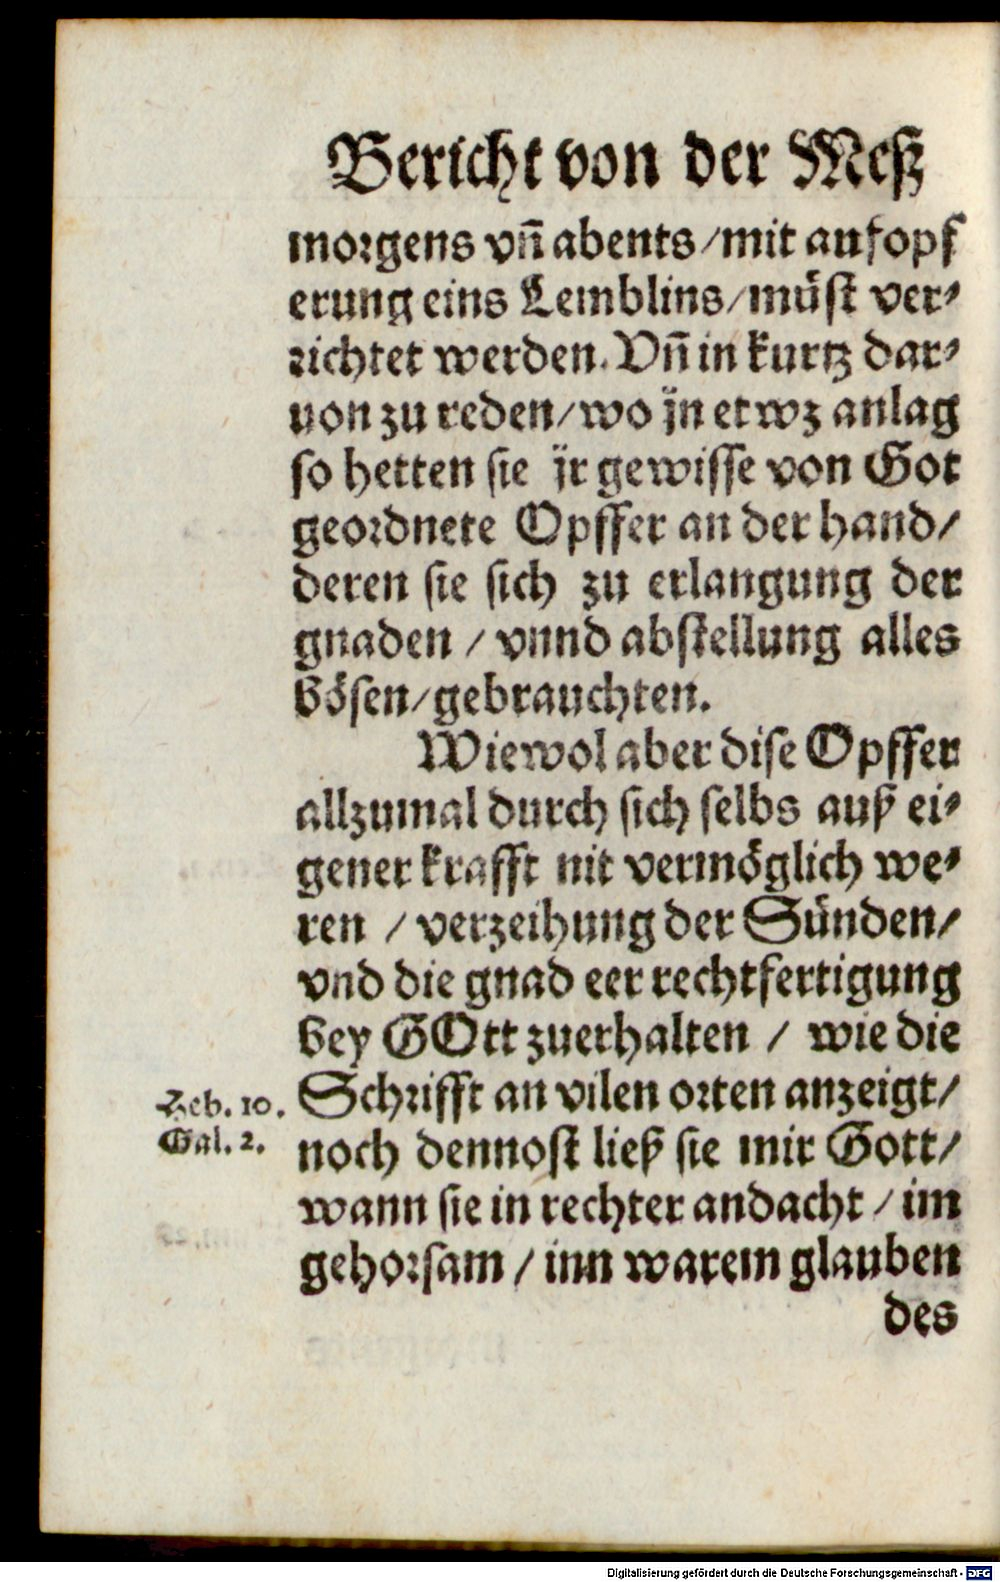 Bericht von der Meß
morgens vñ abents / mit aufopf
erung eins Lemblins / müst ver⸗
richtet werden. Vñ in kurtz dar⸗
uon zu reden / wo jn etwz anlag
so hetten sie jr gewisse von Got
geordnete Opffer an der hand /
deren sie sich zu erlangung der
gnaden / vnnd abstellung alles
bösen / gebrauchten.
Wiewol aber dise Opffer
allzumal durch sich selbs auß ei⸗
gener krafft nit vermöglich we⸗
ren / verzeihung der Sünden /
vnd die gnad eer rechtfertigung
bey GOtt zuerhalten / wie die
Schrifft an vilen orten anzeigt /
Heb. 10.
Gal. 2.
noch dennost ließ sie mir Gott /
wann sie in rechter andacht / im
gehorsam / inn warem glauben
des
Digitalisierung gefördert durch die Deutsche Forschungsgemeinschaft - DFG